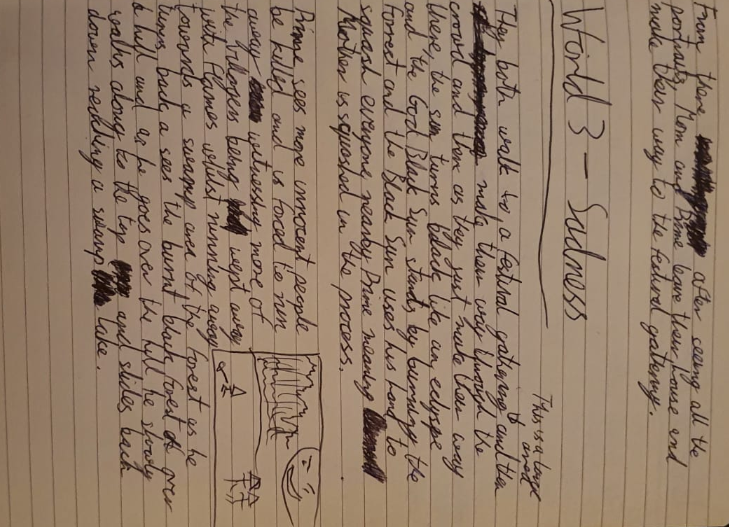 From there after seeing all the
portraits, Mom and Prime leave their house and
make their way to the festival gathering.
World 3 - Sadness
This is a large
area
They both walk to a festival gathering and then
make their way through the
crowd and then as they just make their way
there the sun turns black like an eclipse
and the God Black Sun starts by burning the
forrest and the Black Sun uses his hand to
squash everyone nearby Prime meaning
Mother is squashed in the process.
Prime sees more innocent people
be killed and is forced to run
away witnessing more of
the villagers being wept away
with flames whilst running away
towards a swamp area of the forest as he
turns back a sees the burnt black forest over
a hill and as he goes over the hill he slowly
walks along to the top and slides back
down reaching a swamp lake.